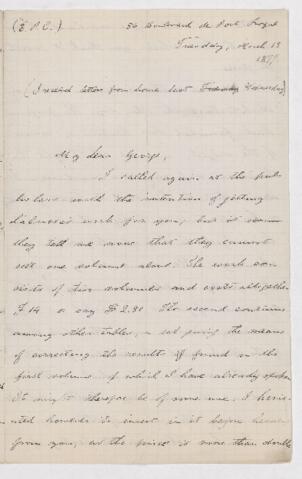 (E. P. C.) 56 Boulevard de Port Royal
Tuesday, March 13
1877
(I received letters from home last Tuesday Wednesday)
My dear George,
I called again at the pub-
lishers with the intention of getting
work for you; but it seems
they tell me now that they cannot
sell one volume alone. The work con-
sists of two volumes and costs altogether
F 14 or say $2.80. The second contains
among other tables, a set giving the means
of correcting the results if found in the
first volume of which I have already spoken
It might therefore be of some use. I hesi-
tated however to invest in it before
from you, as the price is more than double